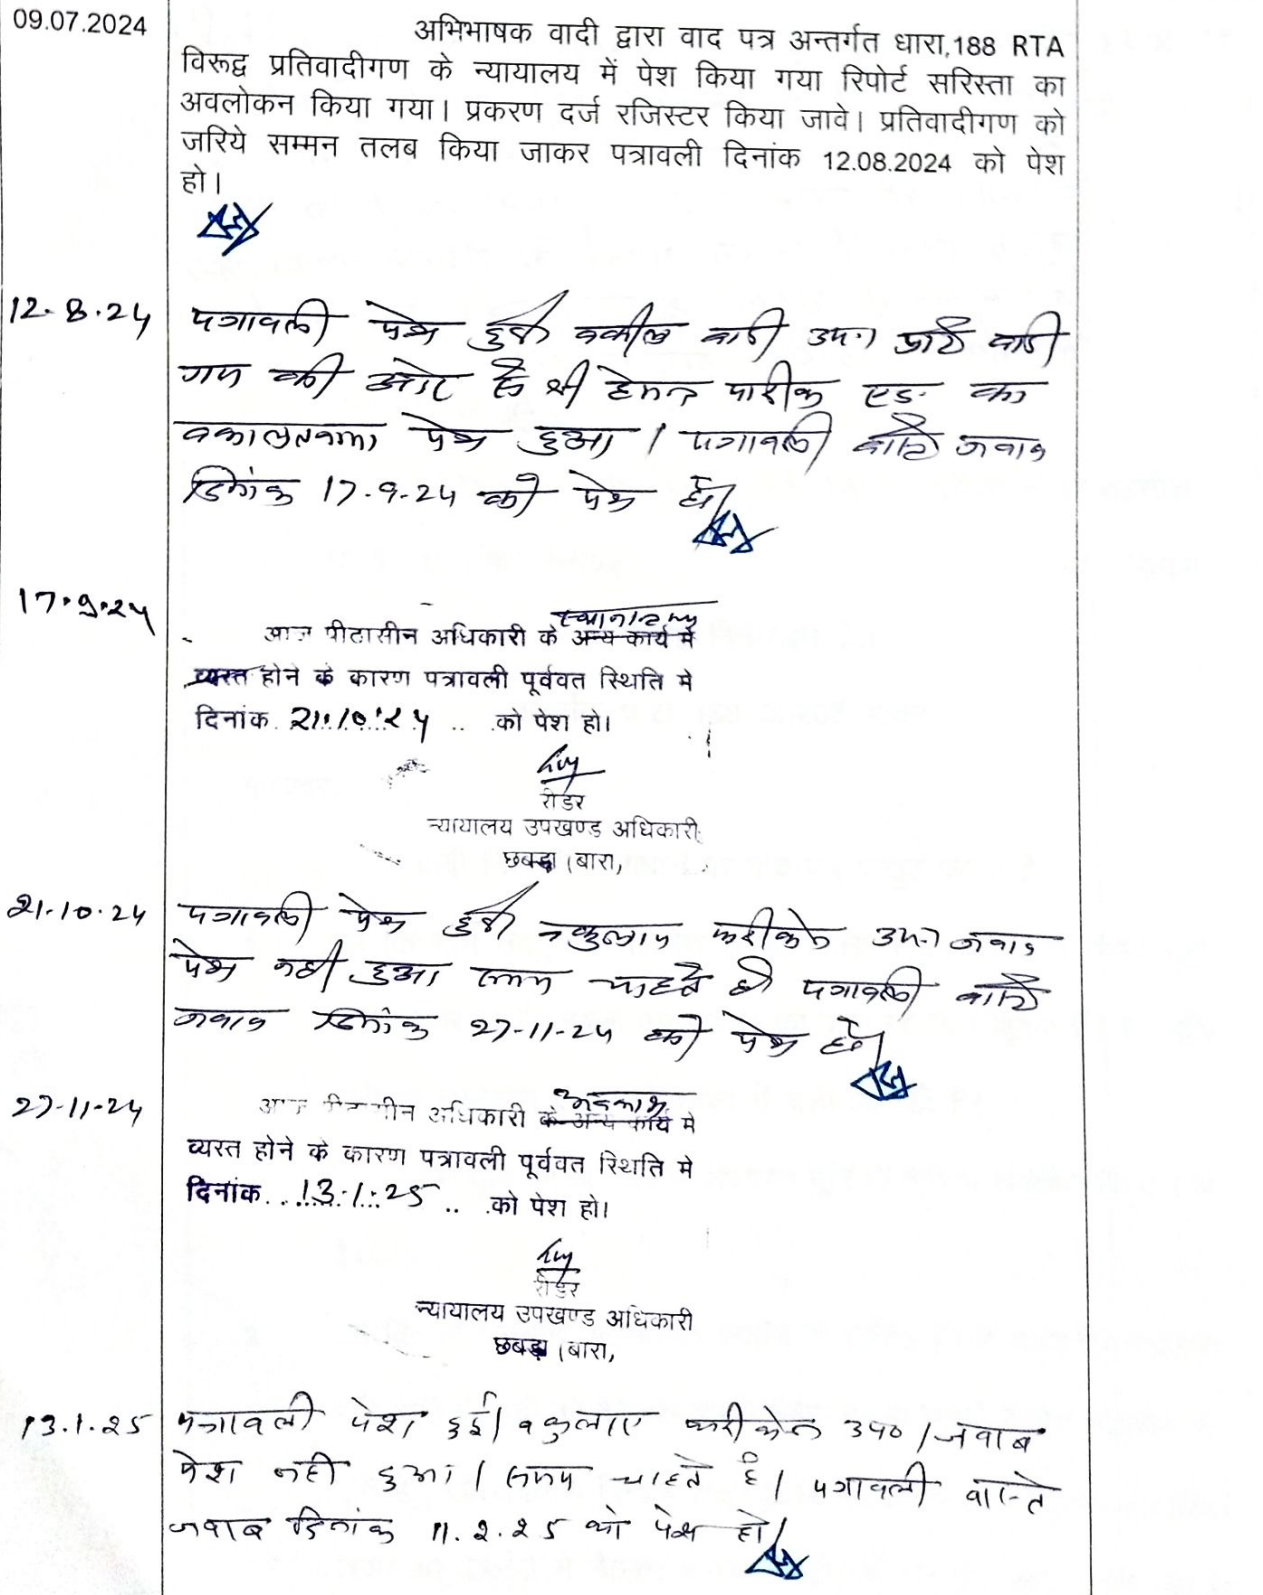 09.07.2024
अभिभाषक वादी द्वारा वाद पत्र अन्तर्गत धारा,188 RTA
विरूद्व प्रतिवादीगण के न्यायालय में पेश किया गया रिपोर्ट सरिस्ता का
अवलोकन किया गया। प्रकरण दर्ज रजिस्टर किया जावे। प्रतिवादीगण को
जरिये सम्मन तलब किया जाकर पत्रावली दिनांक 12.08.2024 को पेश
हो।
12.8.24
पत्रावली पेश हुई वकील वादी उप० प्रति वादी
गण की ओर से श्री हेमन्त पारीक एड. का
वकालतनामा पेश हुआ। पत्रावली वास्ते जवाब
दिनांक 17.9.24 को पेश हो।
17.9.24
स्थानान्तरण
आज पीठासीन अधिकारी के अन्य कार्य मे
व्यस्त होने के कारण पत्रावली पूर्ववत स्थिति मे
दिनांक 21.10.24 को पेश हो।
रीडर
न्यायालय उपखण्ड अधिकारी
छबडा (बारा,
21.10.24
पत्रावली पेश हुई वकुलाय फरीकेन उप० जवाब
पेश नही हुआ समय चाहते है पत्रावली वास्ते
जवाब दिनांक 27-11-24 को पेश हो।
27-11-24
अवकाश
आज पीठासीन अधिकारी के अन्य कार्य मे
व्यस्त होने के कारण पत्रावली पूर्ववत स्थिति मे
दिनांक 13.1.25 को पेश हो।
रीडर
न्यायालय उपखण्ड अधिकारी
छबडा (बारा,
13.1.25
पत्रावली पेश हुई। वकुलाए फरीकेन उप०। जवाब
पेश नही हुआ। समय चाहते है। पत्रावली वास्ते
जवाब दिनांक 11.2.25 को पेश हो।